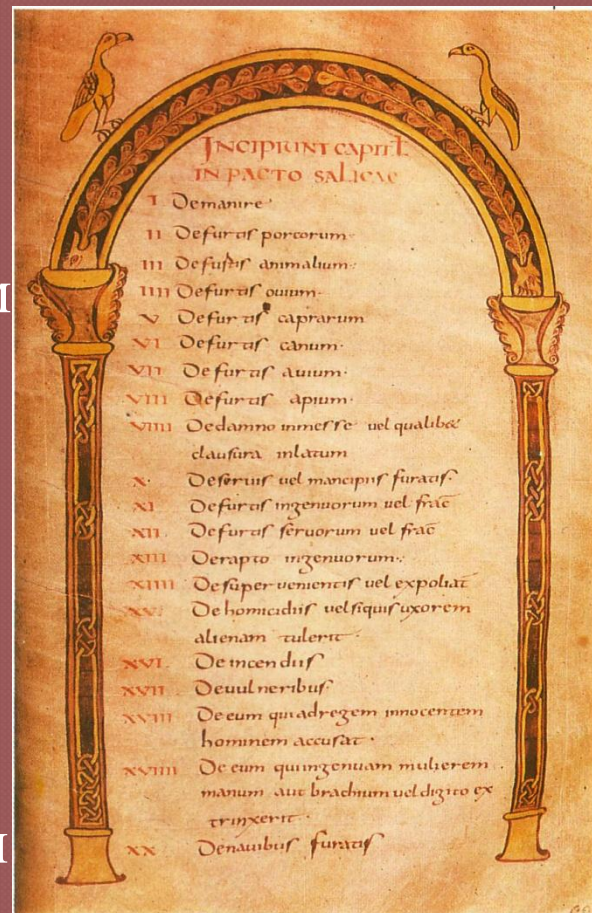 INCIPIUNT CAPITL
IN PACTO SALICAE
I Demanire
II Defurtis porcorum·
III Defurtis animalium·
IIII Defurtis ouium·
V Defurtis caprarum
VI Defurtis canum·
VII Defurtis auium·
VIII Defurtis apium·
VIIII Dedamno inmesse vel qualibet
clausura inlatum
X· Deseruis vel mancipiis furatis·
XI Defurtis ingenuorum vel frac̄
XII Defurtis seruorum vel frac̄
XIII Derapto ingenuorum·
XIIII Desuper venientis vel expoliat̄
XV· De homicidiis velsiquis uxorem
alienam tulerit·
XVI· De incendiis
XVII Deuulneribus·
XVIII De eum qui adregem innocentem
hominem accusat·
XVIIII De eum qui ingenuam mulierem
manum aut brachium vel digito ex
trinxerit·
XX Denauibus furatis
M
I